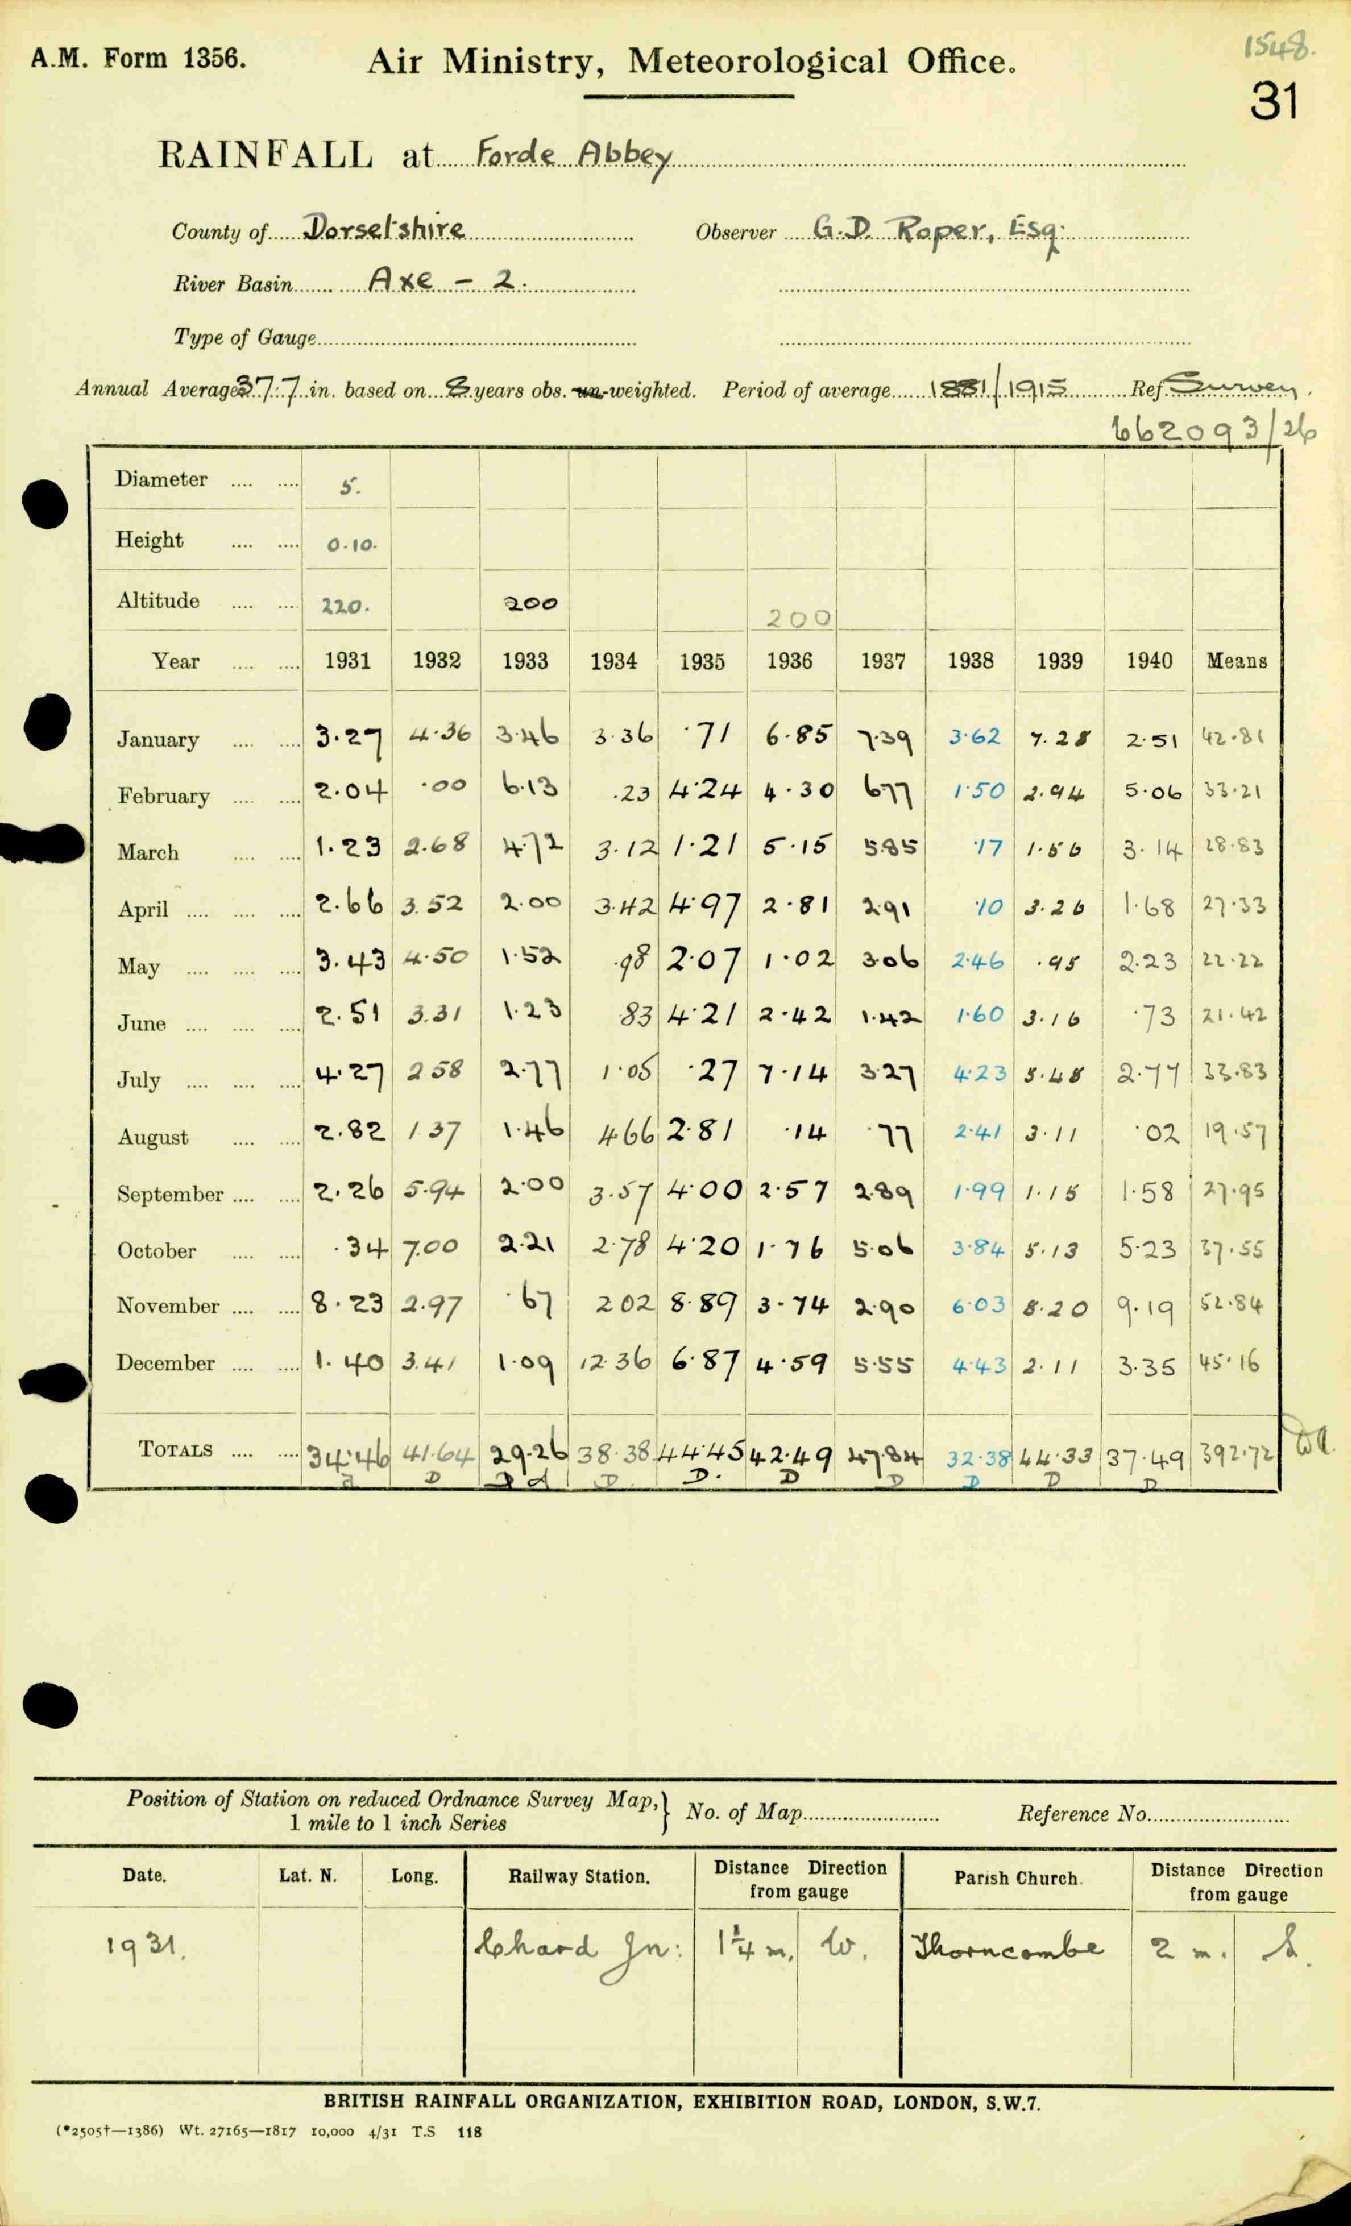 1548.
A.M. Form 1356. Air Ministry, Meteorological Office.
31
RAINFALL at Forde Abbey
County of Dorsetshire Observer G.D. Roper, Esq.
River Basin Axe - 2.
Type of Gauge
Annual Average 37.7 in. based on 8 years obs. un-weighted. Period of average 1881/1915 Ref. Survey
662093/26
Diameter 5.
Height 0.10.
Altitude 220. 200 200
Year 1931 1932 1933 1934 1935 1936 1937 1938 1939 1940 Means
January 3.27 4.36 3.46 3.36 .71 6.85 7.39 3.62 7.28 2.51 42.81
February 2.04 .00 6.13 .23 4.24 4.30 6.77 1.50 2.94 5.06 33.21
March 1.23 2.68 4.72 3.12 1.21 5.15 5.85 .17 1.56 3.14 28.83
April 2.66 3.52 2.00 3.42 4.97 2.81 2.91 .10 3.26 1.68 27.33
May 3.43 4.50 1.52 .98 2.07 1.02 3.06 2.46 .95 2.23 22.22
June 2.51 3.31 1.23 .83 4.21 2.42 1.42 1.60 3.16 .73 21.42
July 4.27 2.58 2.77 1.05 .27 7.14 3.27 4.23 5.48 2.77 33.83
August 2.82 1.37 1.46 4.66 2.81 .14 .77 2.41 3.11 .02 19.57
September 2.26 5.94 2.00 3.57 4.00 2.57 2.89 1.99 1.15 1.58 27.95
October .34 7.00 2.21 2.78 4.20 1.76 5.06 3.84 5.13 5.23 37.55
November 8.23 2.97 .67 2.02 8.89 3.74 2.90 6.03 8.20 9.19 52.84
December 1.40 3.41 1.09 12.36 6.87 4.59 5.55 4.43 2.11 3.35 45.16
TOTALS 34.46 41.64 29.26 38.38 44.45 42.49 47.84 32.38 44.33 37.49 392.72
D D d D D. D D D D D
Position of Station on reduced Ordnance Survey Map, } No. of Map Reference No.
1 mile to 1 inch Series
Date. Lat. N. Long. Railway Station. Distance Direction from gauge Parish Church. Distance Direction from gauge
1931. Chard Jn: 1¼ m. W. Thorncombe 2 m. S.
BRITISH RAINFALL ORGANIZATION, EXHIBITION ROAD, LONDON, S.W.7.
(*2505†—1386) Wt. 27165—1817 10,000 4/31 T.S 118